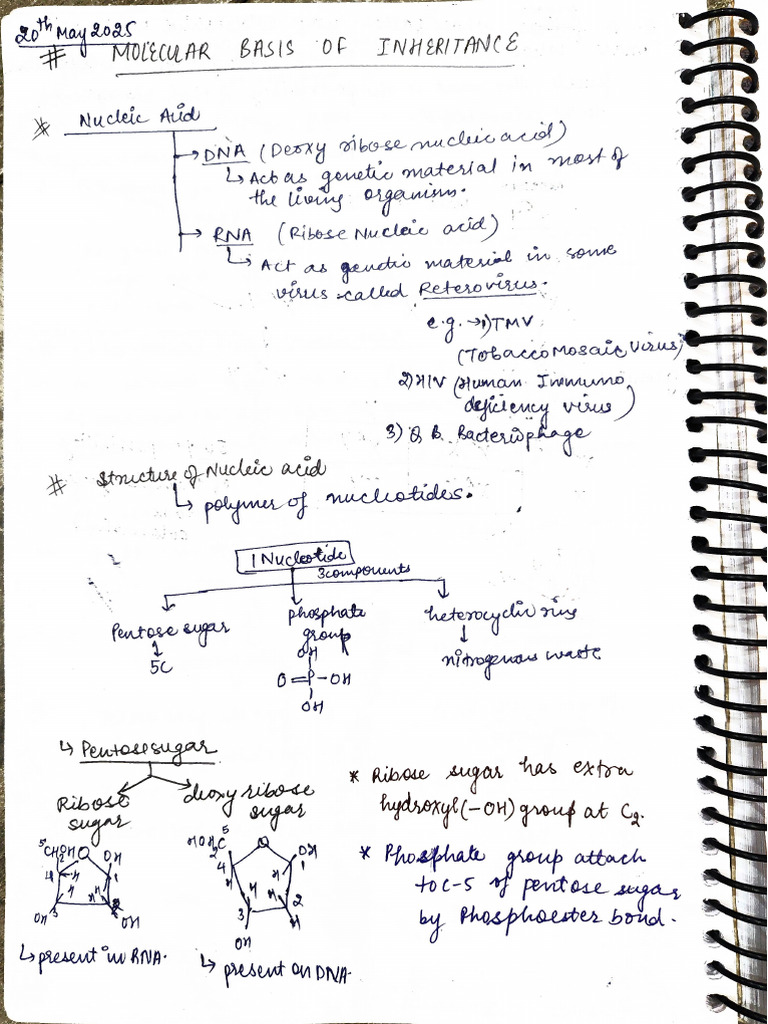 20th May 2025
# MOLECULAR BASIS OF INHERITANCE
* Nucleic Acid
→ DNA (Deoxy ribose nucleic acid)
↳ Act as genetic material in most of
the living organism.
→ RNA (Ribose Nucleic acid)
↳ Act as genetic material in some
virus called Reterovirus.
e.g. → 1) TMV
(Tobacco Mosaic Virus)
2) HIV (Human Immuno
deficiency virus)
3) Q B. Bacteriophage
# Structure of Nucleic acid
↳ polymer of nucleotides.
1 Nucleotide
3 components
Pentose sugar
↓
5C
phosphate
group
OH
O=P-OH
OH
heterocyclic ring
↓
nitrogenous waste
↳ Pentose sugar
Ribose
sugar
deoxy ribose
sugar
5 CH2OH O OH
4 H H 1
H H
OH 3 2 OH
↳ present in RNA.
5
HOH2C O OH
4 H H 1
H H
3 2
OH H
↳ present on DNA.
* Ribose sugar has extra
hydroxyl (-OH) group at C2.
* Phosphate group attach
to C-5 of pentose sugar
by Phosphoester bond.